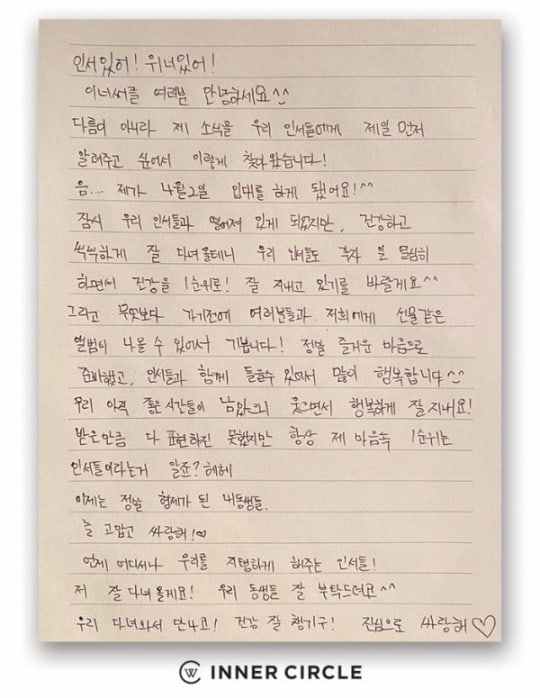 인서있어! 위너있어!
이너써클 여러분 안녕하세요^^
다름이 아니라 제 소식을 우리 인서들에게 제일 먼저
알려주고 싶어서 이렇게 찾아왔습니다!
음... 제가 4월2일 입대를 하게 됐어요!^^
잠시 우리 인서들과 떨어져 있게 되었지만, 건강하고
씩씩하게 잘 다녀올테니 우리 인서들도 각자 일 열심히
하면서 건강을 1순위로! 잘 지내고 있기를 바랄게요^^
그리고 무엇보다 가기전에 여러분들과 저희에게 선물같은
앨범이 나올 수 있어서 기쁩니다! 정말 즐거운 마음으로
준비했고, 인서들과 함께 들을수 있어서 많이 행복합니다^^
우리 아직 좋은 시간들이 남았으니 웃으면서 행복하게 잘지내요!
받은만큼 다 표현하진 못했지만 항상 제 마음속 1순위는
인서들이라는거 알죠? 헤헤
이제는 정말 형제가 된 내동생들.
늘 고맙고 싸랑해!♡
언제 어디서나 우리를 지탱하게 해주는 인서들!
저 잘 다녀올게요! 우리 동생들 잘 부탁드려요^^
우리 다녀와서 만나고! 건강 잘 챙기구! 진심으로 싸랑해♡
INNER CIRCLE